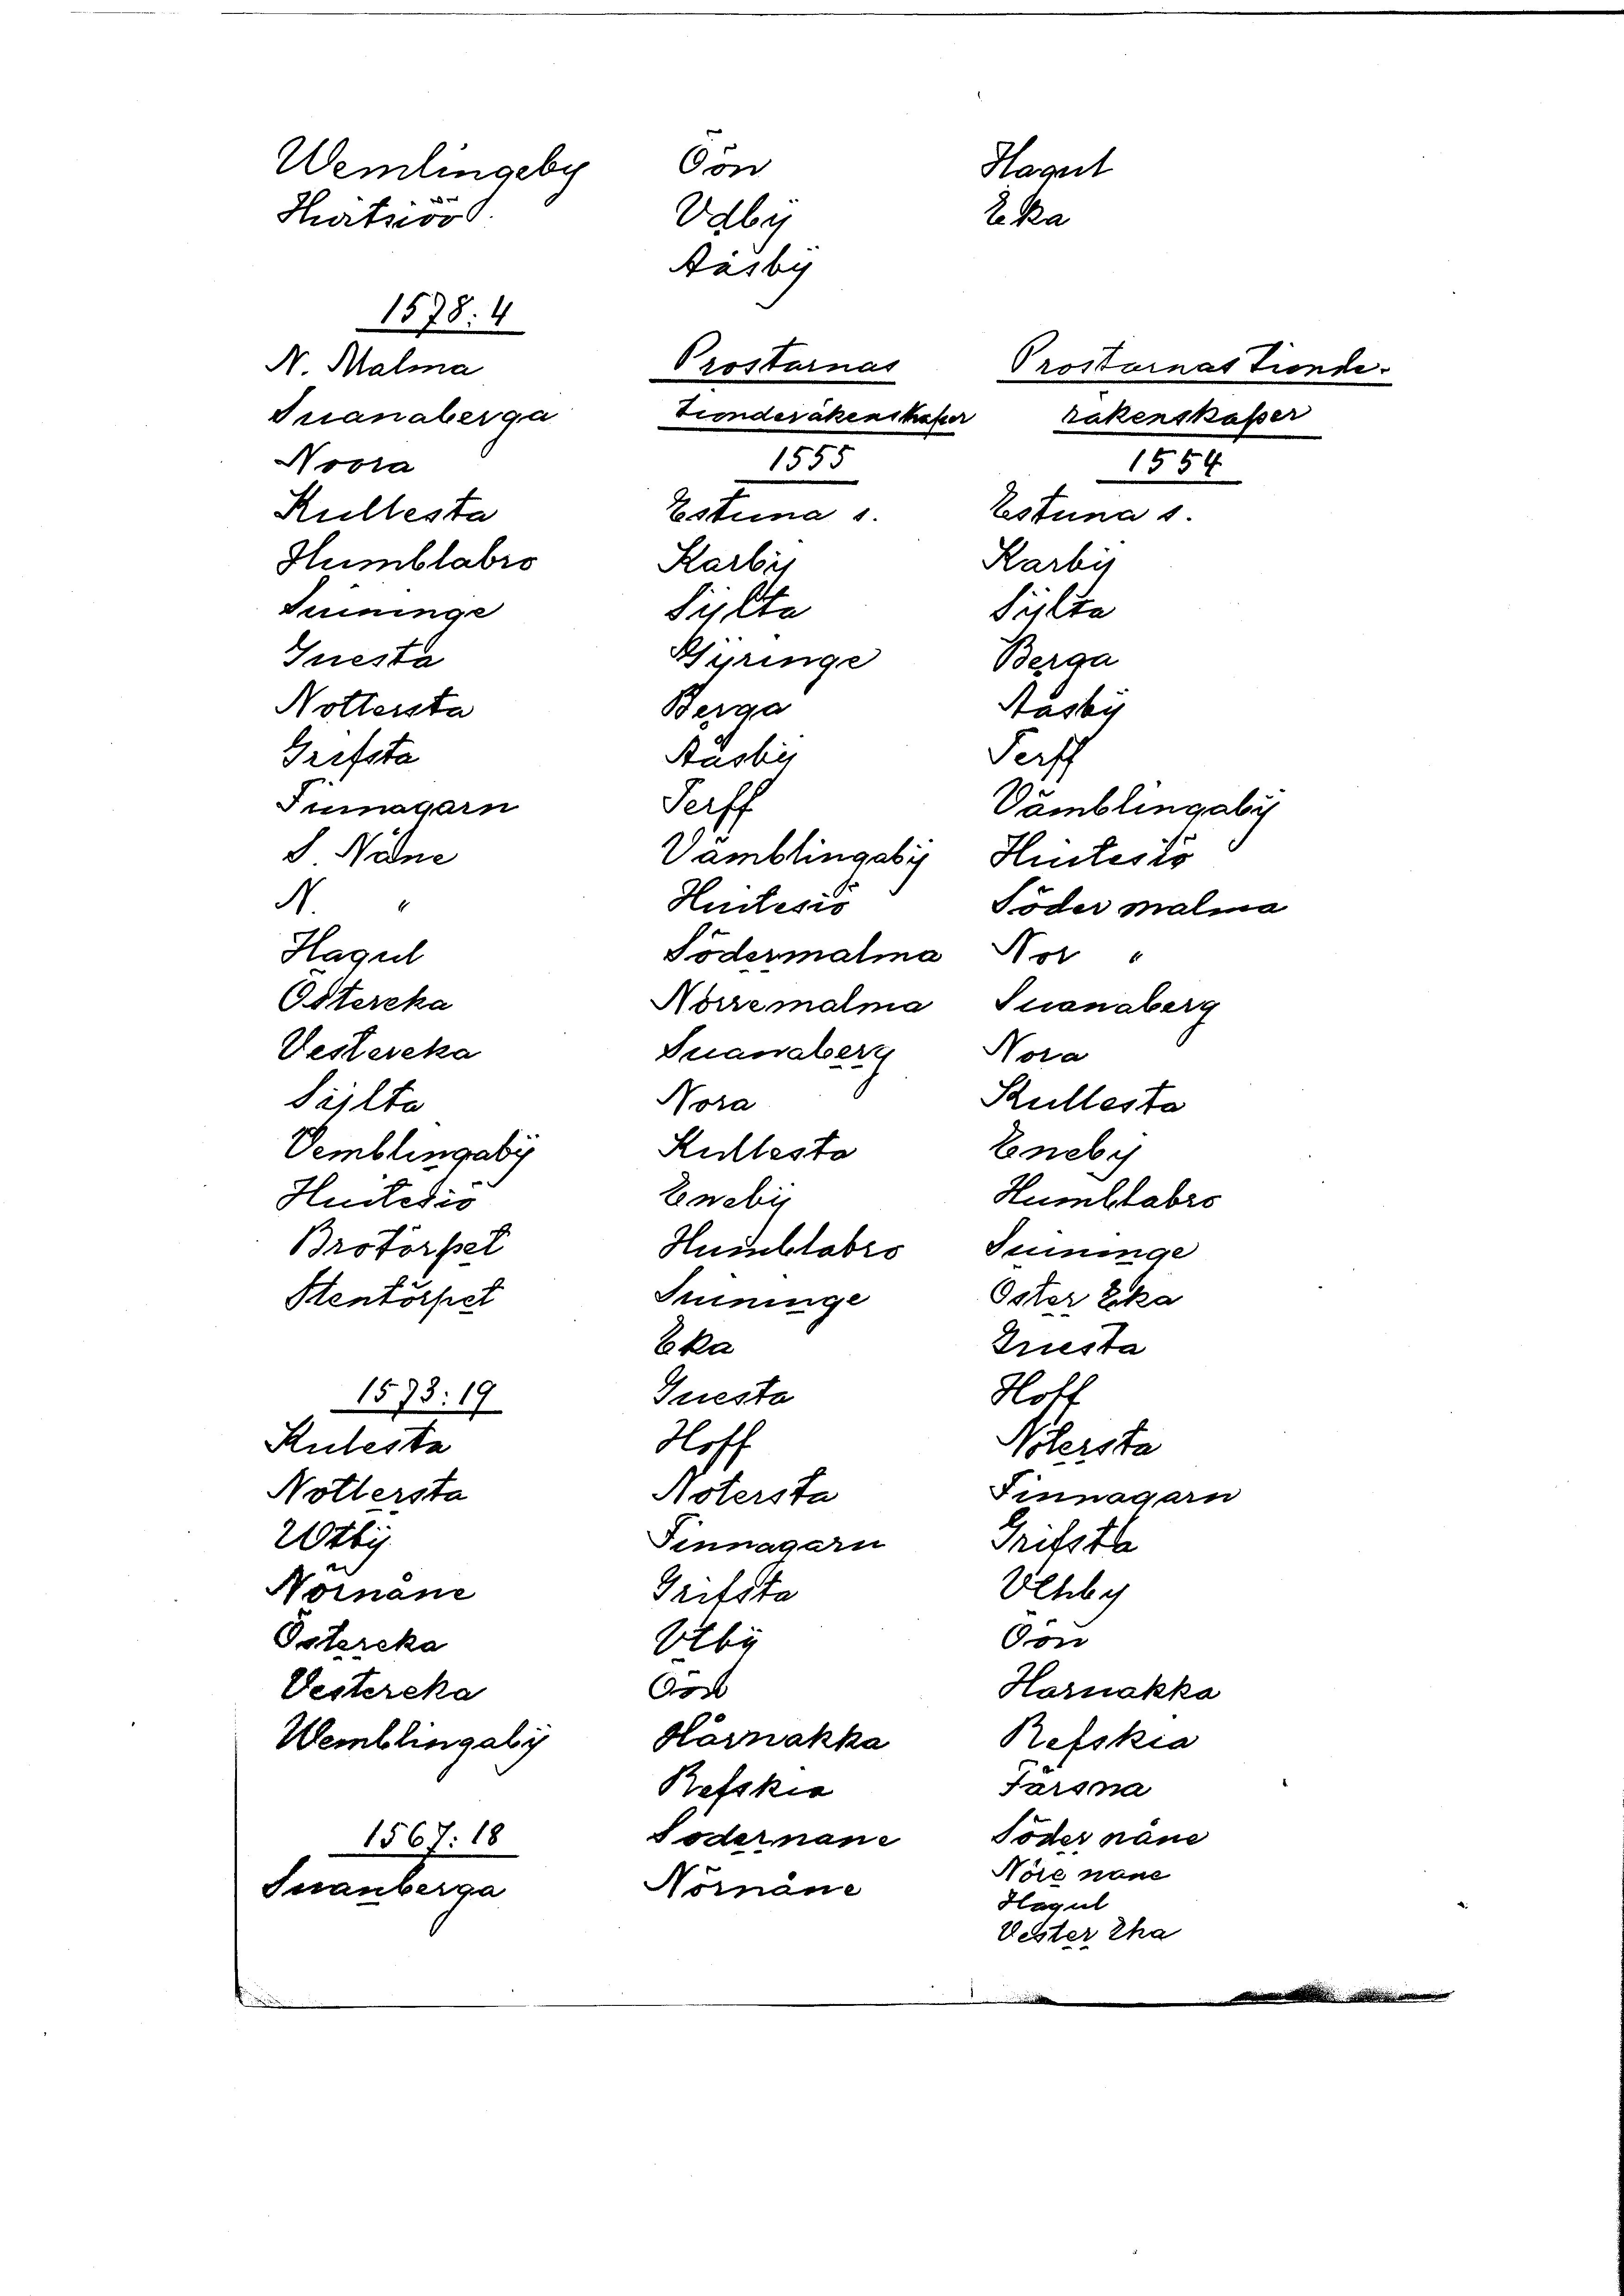 Wemlingeby
Huitsiöö
1578:4
N. Malma
Suanaberga
Noora
Kullesta
Humblabro
Suninge
Gnesta
Nottersta
Grifsta
Finnagarn
S. Näne
N. "
Hagul
Östereka
Vestereka
Sÿlta
Vemblingabÿ
Huitesiö
Brotorpet
Stentorpet
1573:19
Kulesta
Nottersta
Utbÿ
Nörnåne
Östereka
Vestereka
Wemblingabÿ
1567:18
Suanberga
Öön
Vdbÿ
Åásbÿ
Prostarnas
Tionderäkenskaper
1555
Estuna s.
Karbÿ
Sÿlta
Gÿringe
Berga
Åásbÿ
Serff
Vämblingabÿ
Huitesiö
Södermalma
Nörremalma
Suanaberg
Nora
Kullesta
Enebÿ
Humblabro
Suninge
Eka
Gnesta
Hoff
Notersta
Finnagarn
Grifsta
Vtbÿ
Öön
Hårnakka
Refskia
Södernane
Nörnåne
Hagul
Eka
Prostarnas Tionde-
räkenskaper
1554
Estuna s.
Karbÿ
Sÿlta
Berga
Åásbÿ
Serff
Vämblingabÿ
Huitesiö
Söder malma
Nor "
Suanaberg
Nora
Kullesta
Eneby
Humblabro
Suninge
Öster Eka
Gnesta
Hoff
Notersta
Finnagarn
Grifsta
Öön
Harnakka
Refskia
Färsna
Söder nåne
Nöre nane
Hagul
Vester Eka